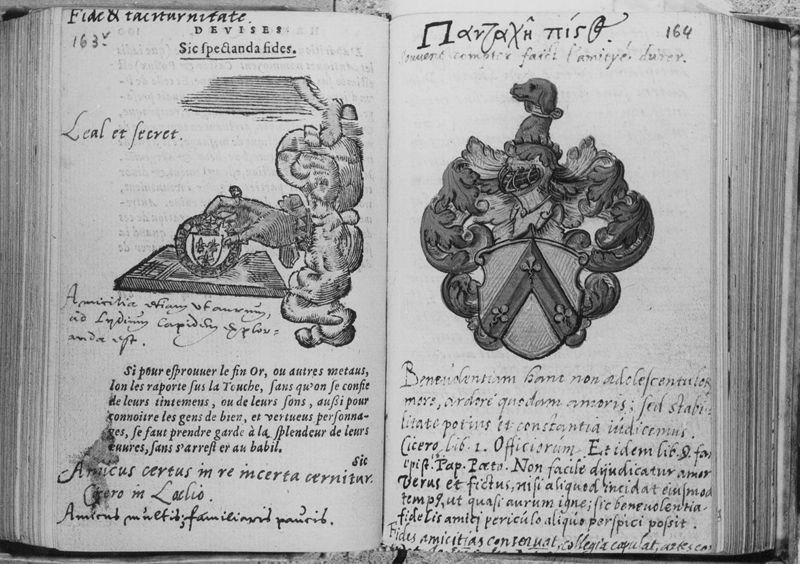 Fide & taciturnitate.
DEVISES
163v
Sic spectanda fides.
Leal et secret.
Amicitia etiam ut aurum,
ad Lydium lapidem explor-
anda est.
Si pour esprouver le fin Or, ou autres metaus,
lon les raporte sus la Touche, sans qu'on se confie
de leurs tintemens, ou de leurs sons, außi pour
connoitre les gens de bien, et vertueus personna-
ges, se faut prendre garde à la splendeur de leurs
euures, sans s'arrester au babil.
Sic
Amicus certus in re incerta cernitur.
Cicero in Lælio.
Amicus multis; familiaris paucis.
Πανταχῆ πίστ
164
Souvent compter faict l'amityé durer.
Beneuolentiam hanc non adolescentulor
more, ardore quodam amoris; sed stabi-
litate potius et constantia iudicemus.
Cicero lib. 1. Officiorum. Et idem lib. 9. fam
epist. Pap. Pæto. Non facile dijudicatur amor
verus et fictus, nisi aliquod incidat eiusmod
temp9, ut quasi aurum igne; sic beneuolentia
fidelis amici periculo aliquo perspici possit.
Fides amicitias conseruat, collegia copulat, artes con